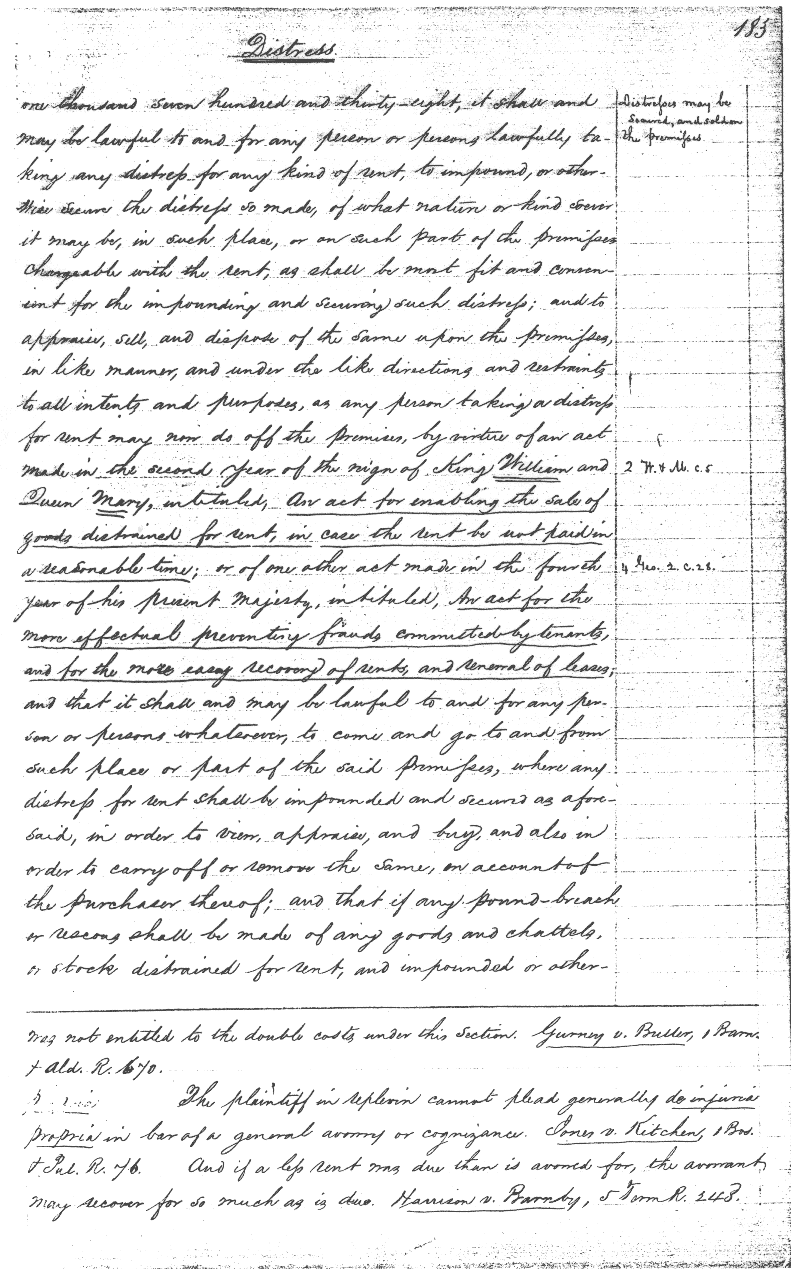 185
Distress.
one thousand seven hundred and thirty-eight, it shall and
may be lawful to and for any person or persons lawfully ta-
king any distress for any kind of rent, to impound, or other-
wise secure the distress so made, of what nature or kind soever
it may be, in such place, or on such part of the premisses
chargeable with the rent, as shall be most fit and conven-
ient for the impounding and securing such distress; and to
appraise, sell, and dispose of the same upon the premisses,
in like manner, and under the like directions and restraints
to all intents and purposes, as any person taking a distress
for rent may now do off the premises, by virtue of an act
made in the second year of the reign of King William and
Queen Mary, intituled, An act for enabling the sale of
goods distrained for rent, in case the rent be not paid in
a reasonable time; or of one other act made in the fourth
year of his present Majesty, intituled, An act for the
more effectual preventing frauds committed by tenants,
and for the more easy recovery of rents, and renewal of leases;
and that it shall and may be lawful to and for any per-
son or persons whatsoever, to come and go to and from
such place or part of the said premisses, where any
distress for rent shall be impounded and secured as afore-
said, in order to view, appraise, and buy, and also in
order to carry off or remove the same, on account of
the purchaser thereof; and that if any pound-breach
or rescous shall be made of any goods and chattels,
or stock distrained for rent, and impounded or other-
Distresses may be
secured, and sold on
the premisses.
2 W. & M. c. 5
4 Geo. 2. c. 28.
was not entitled to the double costs under this section. Gurney v. Buller, 1 Barn.
& Ald. R. 670.
The plaintiff in replevin cannot plead generally de injuria
propria in bar of a general avowry or cognizance. Jones v. Kitchen, 1 Bos.
& Pul. R. 76. And if a less rent was due than is avowed for, the avowant
may recover for so much as is due. Harrison v. Barnby, 5 Term R. 248.